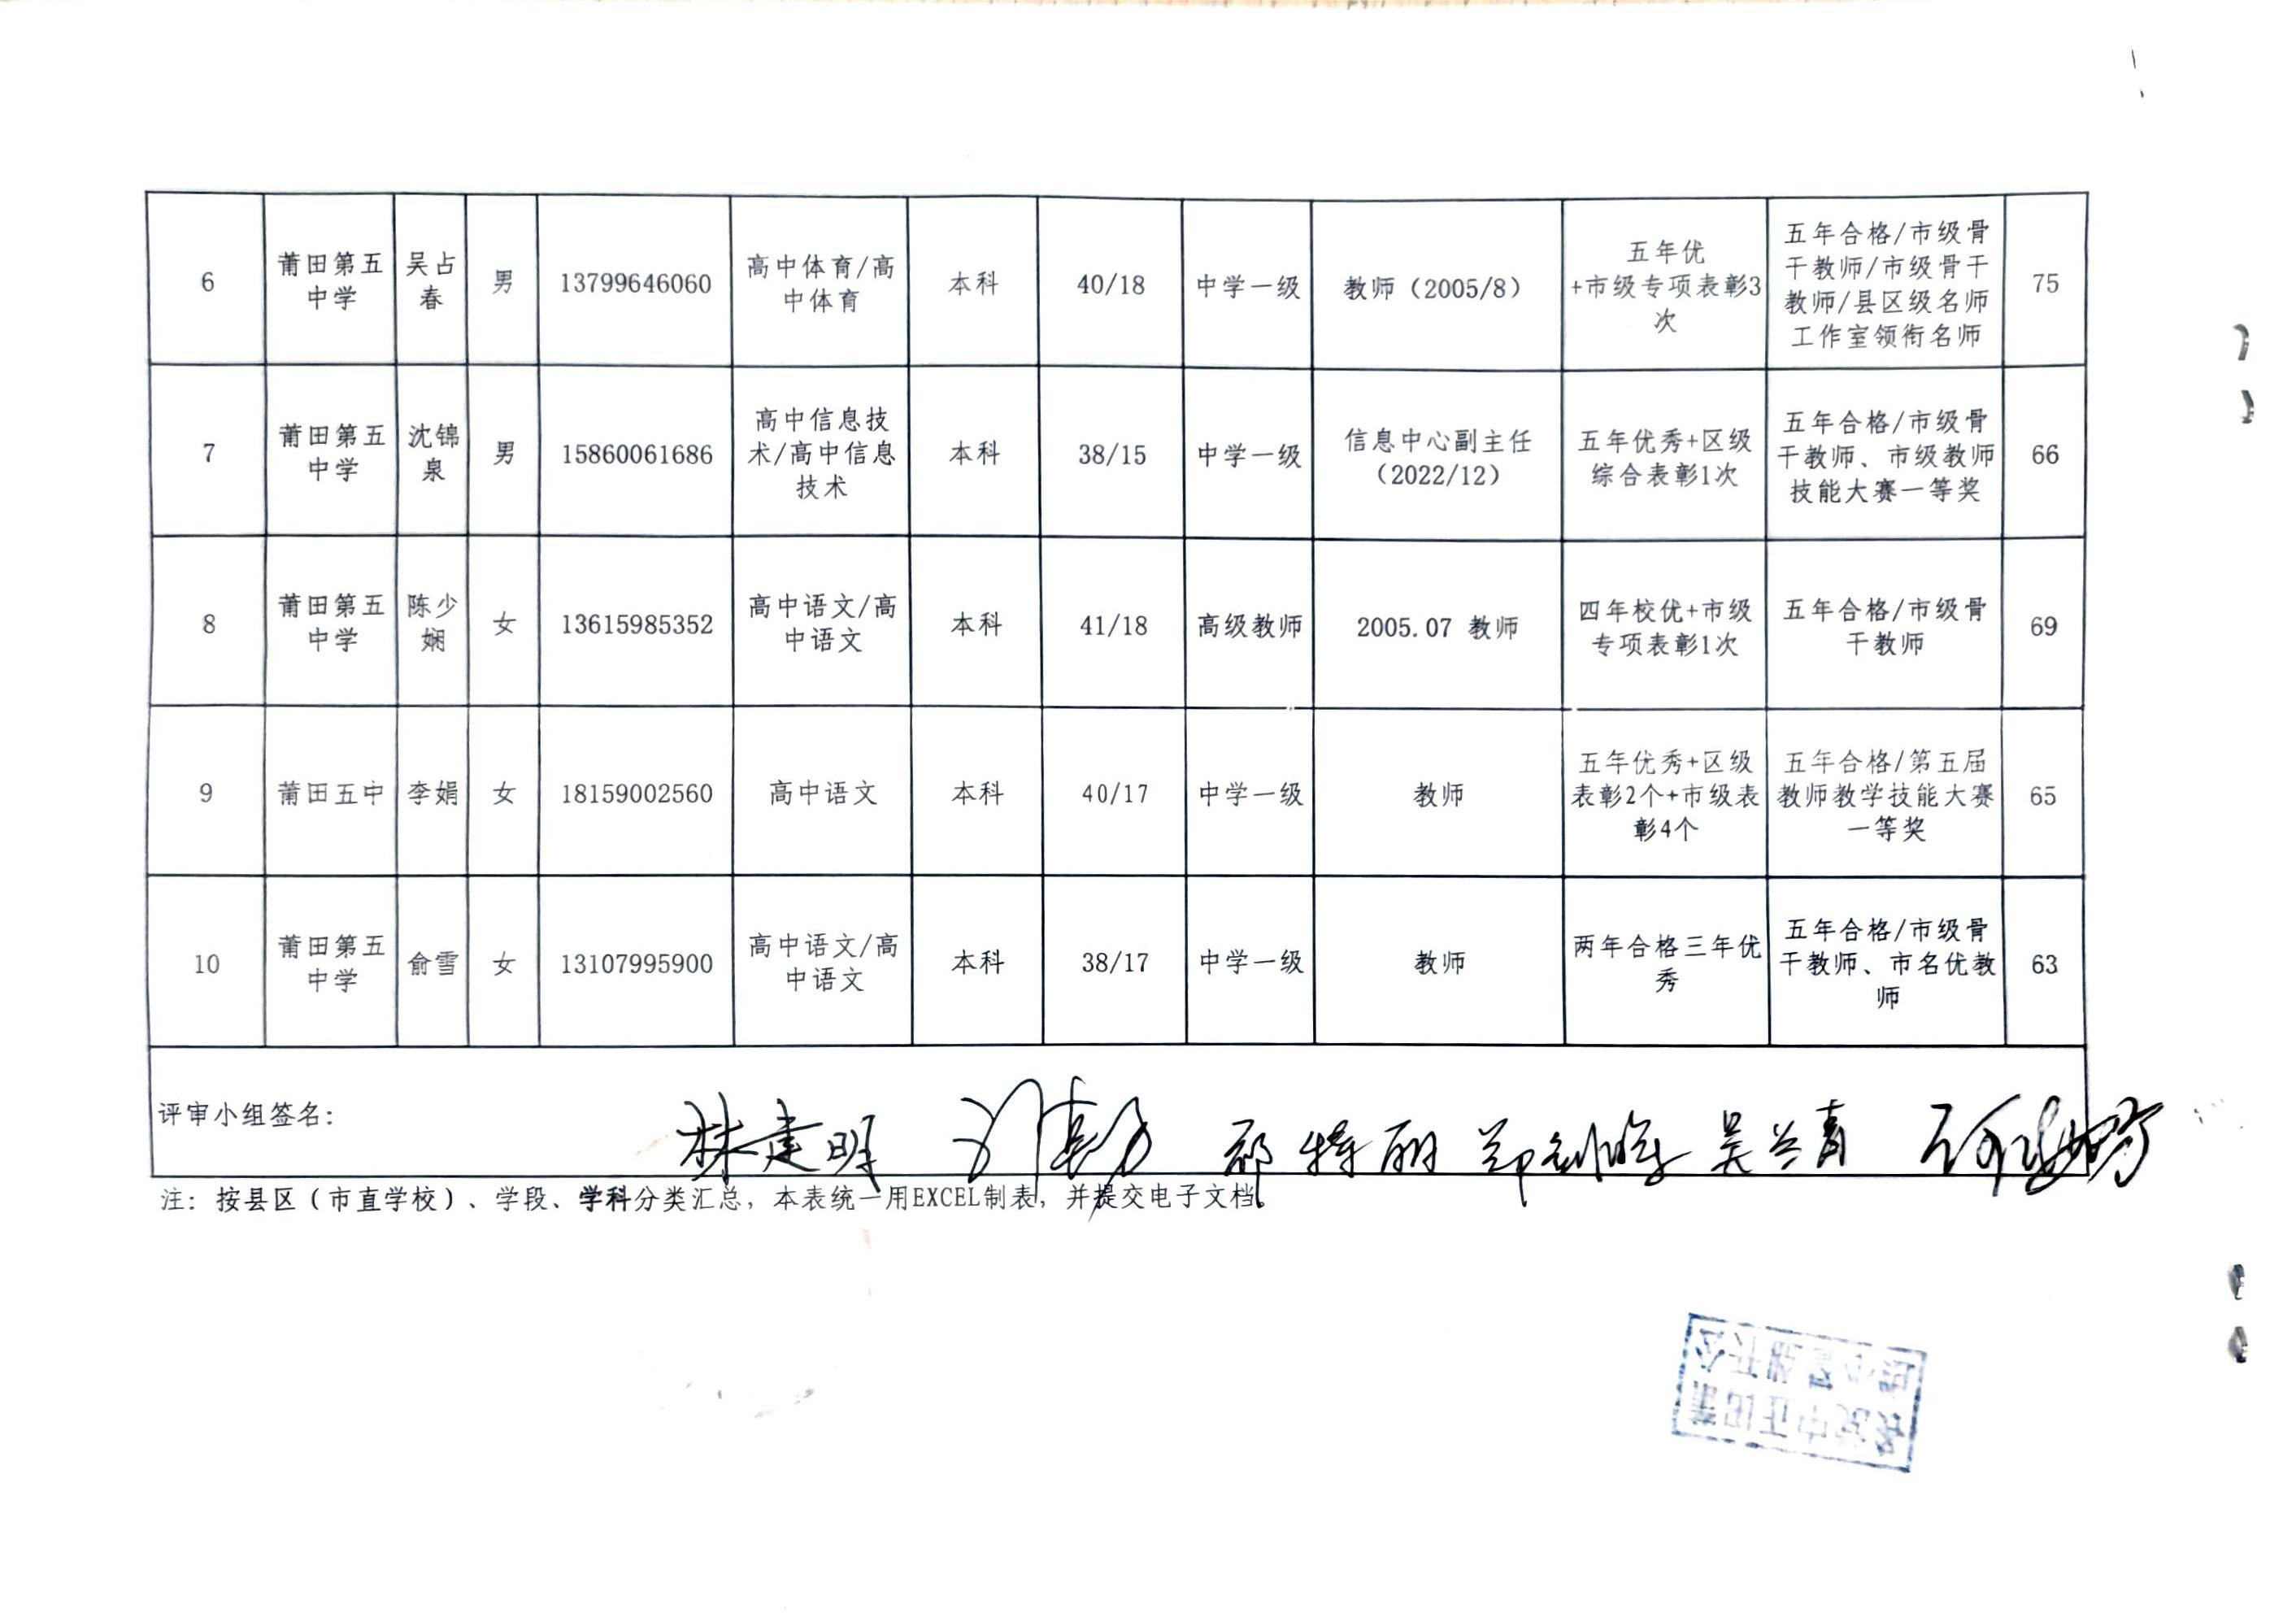 6 莆田第五中学 吴占春 男 13799646060 高中体育/高中体育 本科 40/18 中学一级 教师（2005/8） 五年优+市级专项表彰3次 五年合格/市级骨干教师/市级骨干教师/县区级名师工作室领衔名师 75
7 莆田第五中学 沈锦泉 男 15860061686 高中信息技术/高中信息技术 本科 38/15 中学一级 信息中心副主任（2022/12） 五年优秀+区级综合表彰1次 五年合格/市级骨干教师、市级教师技能大赛一等奖 66
8 莆田第五中学 陈少娴 女 13615985352 高中语文/高中语文 本科 41/18 高级教师 2005.07 教师 四年校优+市级专项表彰1次 五年合格/市级骨干教师 69
9 莆田五中 李娟 女 18159002560 高中语文 本科 40/17 中学一级 教师 五年优秀+区级表彰2个+市级表彰4个 五年合格/第五届教师教学技能大赛一等奖 65
10 莆田第五中学 俞雪 女 13107995900 高中语文/高中语文 本科 38/17 中学一级 教师 两年合格三年优秀 五年合格/市级骨干教师、市名优教师 63
评审小组签名： 林建明
注：按县区（市直学校）、学段、学科分类汇总，本表统一用EXCEL制表，并提交电子文档。